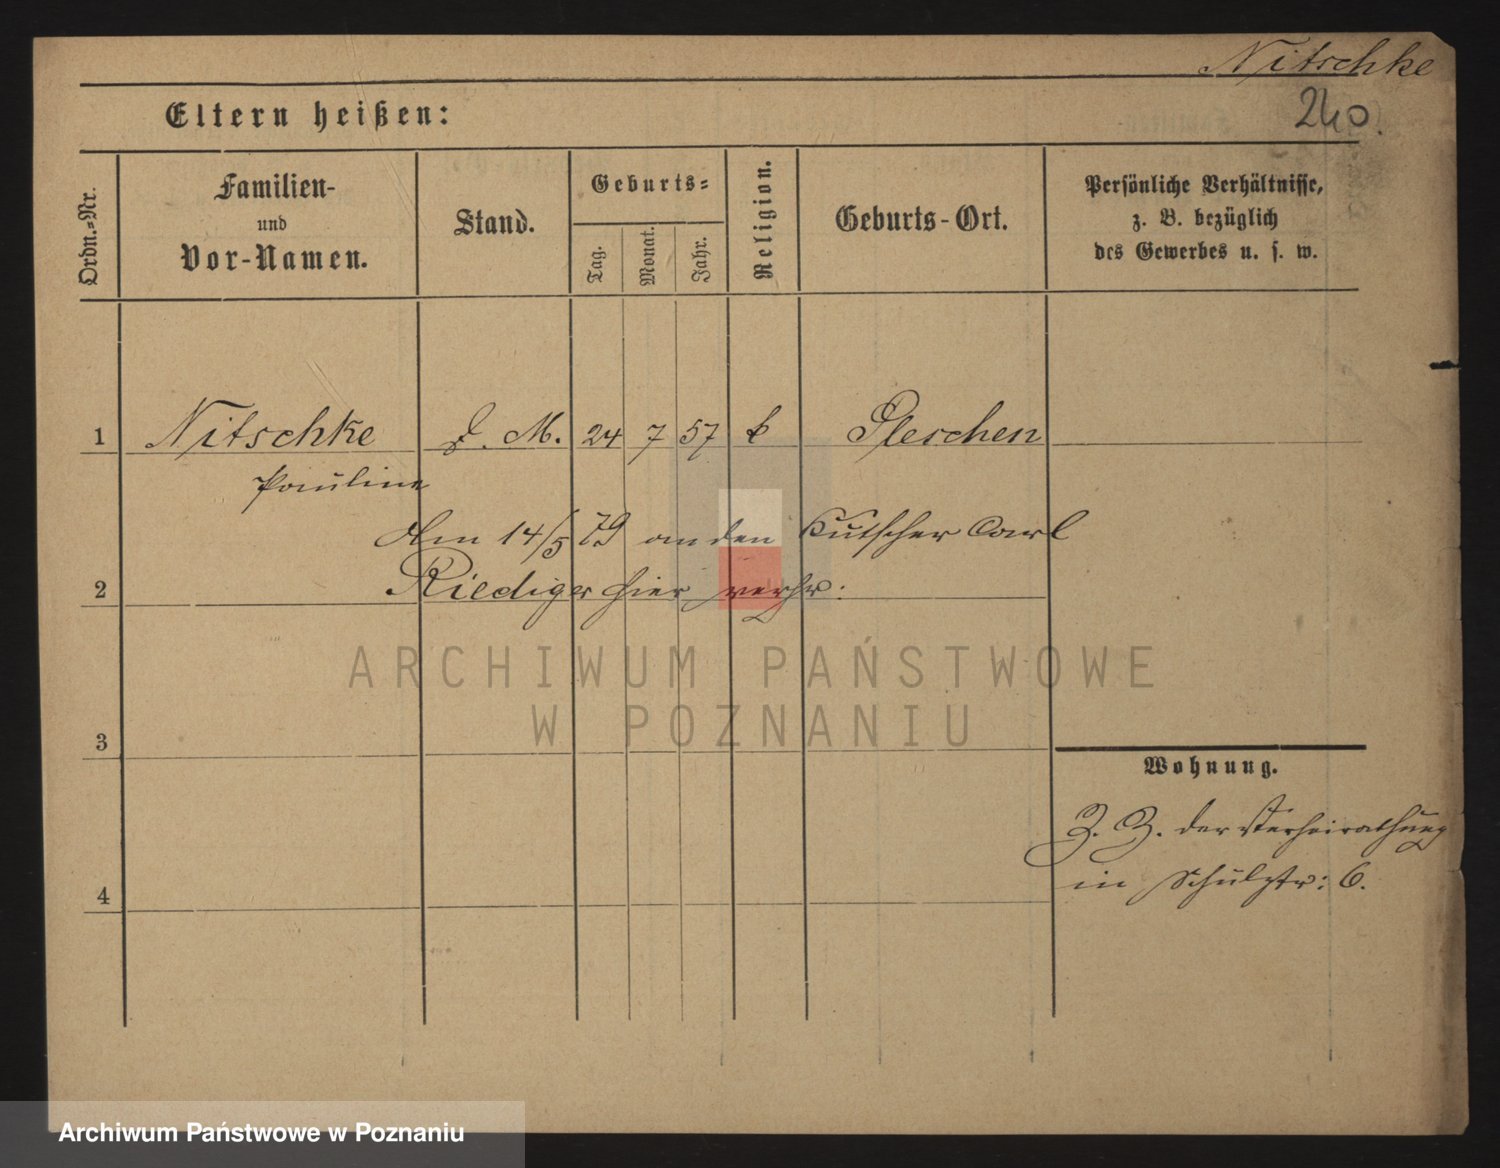 Nitschke
240.
Eltern heißen:
Ordn.-Nr.
Familien-
und
Vor-Namen.
Stand.
Geburts-
Tag.
Monat.
Jahr.
Religion.
Geburts-Ort.
Persönliche Verhältnisse,
z. B. bezüglich
des Gewerbes u. s. w.
1 Nitschke D. M. 24 7 57 k Pleschen
Pauline
Am 14/5 79 an den Kutscher Carl
2 Riediger hier verhr:
ARCHIWUM PAŃSTWOWE
W POZNANIU
3
Wohnung.
Z. Z. der Verheirathung
in Schulstr: 6.
4
Archiwum Państwowe w Poznaniu